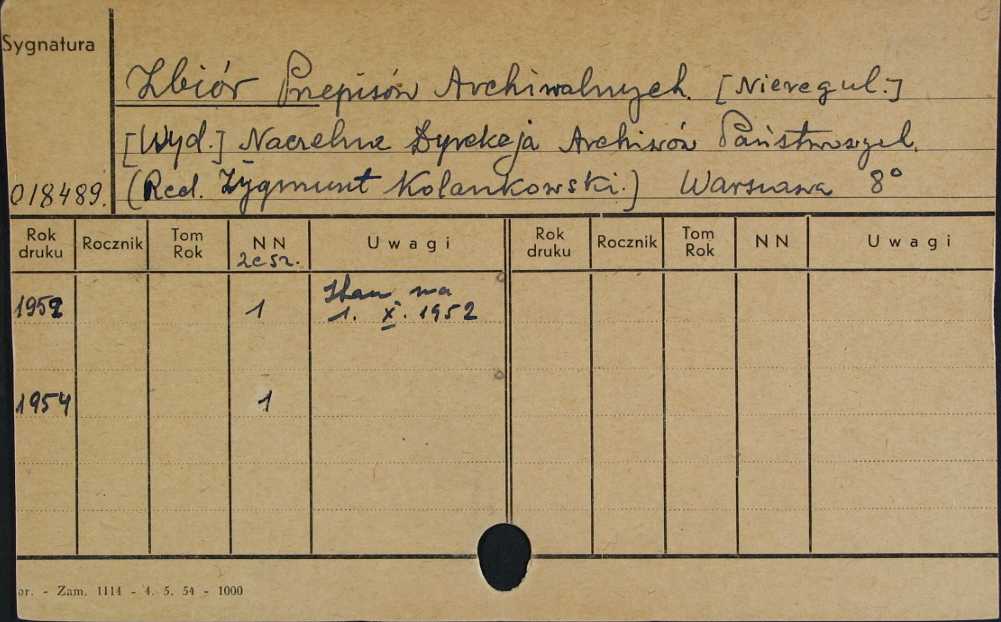 Sygnatura
Zbiór Przepisów Archiwalnych. [Nieregul.]
[Wyd.] Naczelna Dyrekcja Archiwów Państwowych.
018489. (Red. Zygmunt Kolankowski.) Warszawa 8°
Rok druku Rocznik Tom Rok NN zesz. Uwagi Rok druku Rocznik Tom Rok NN Uwagi
1952 1 Stan na
1. X. 1952
1954 1
or. - Zam. 1114 - 4. 5. 54 - 1000